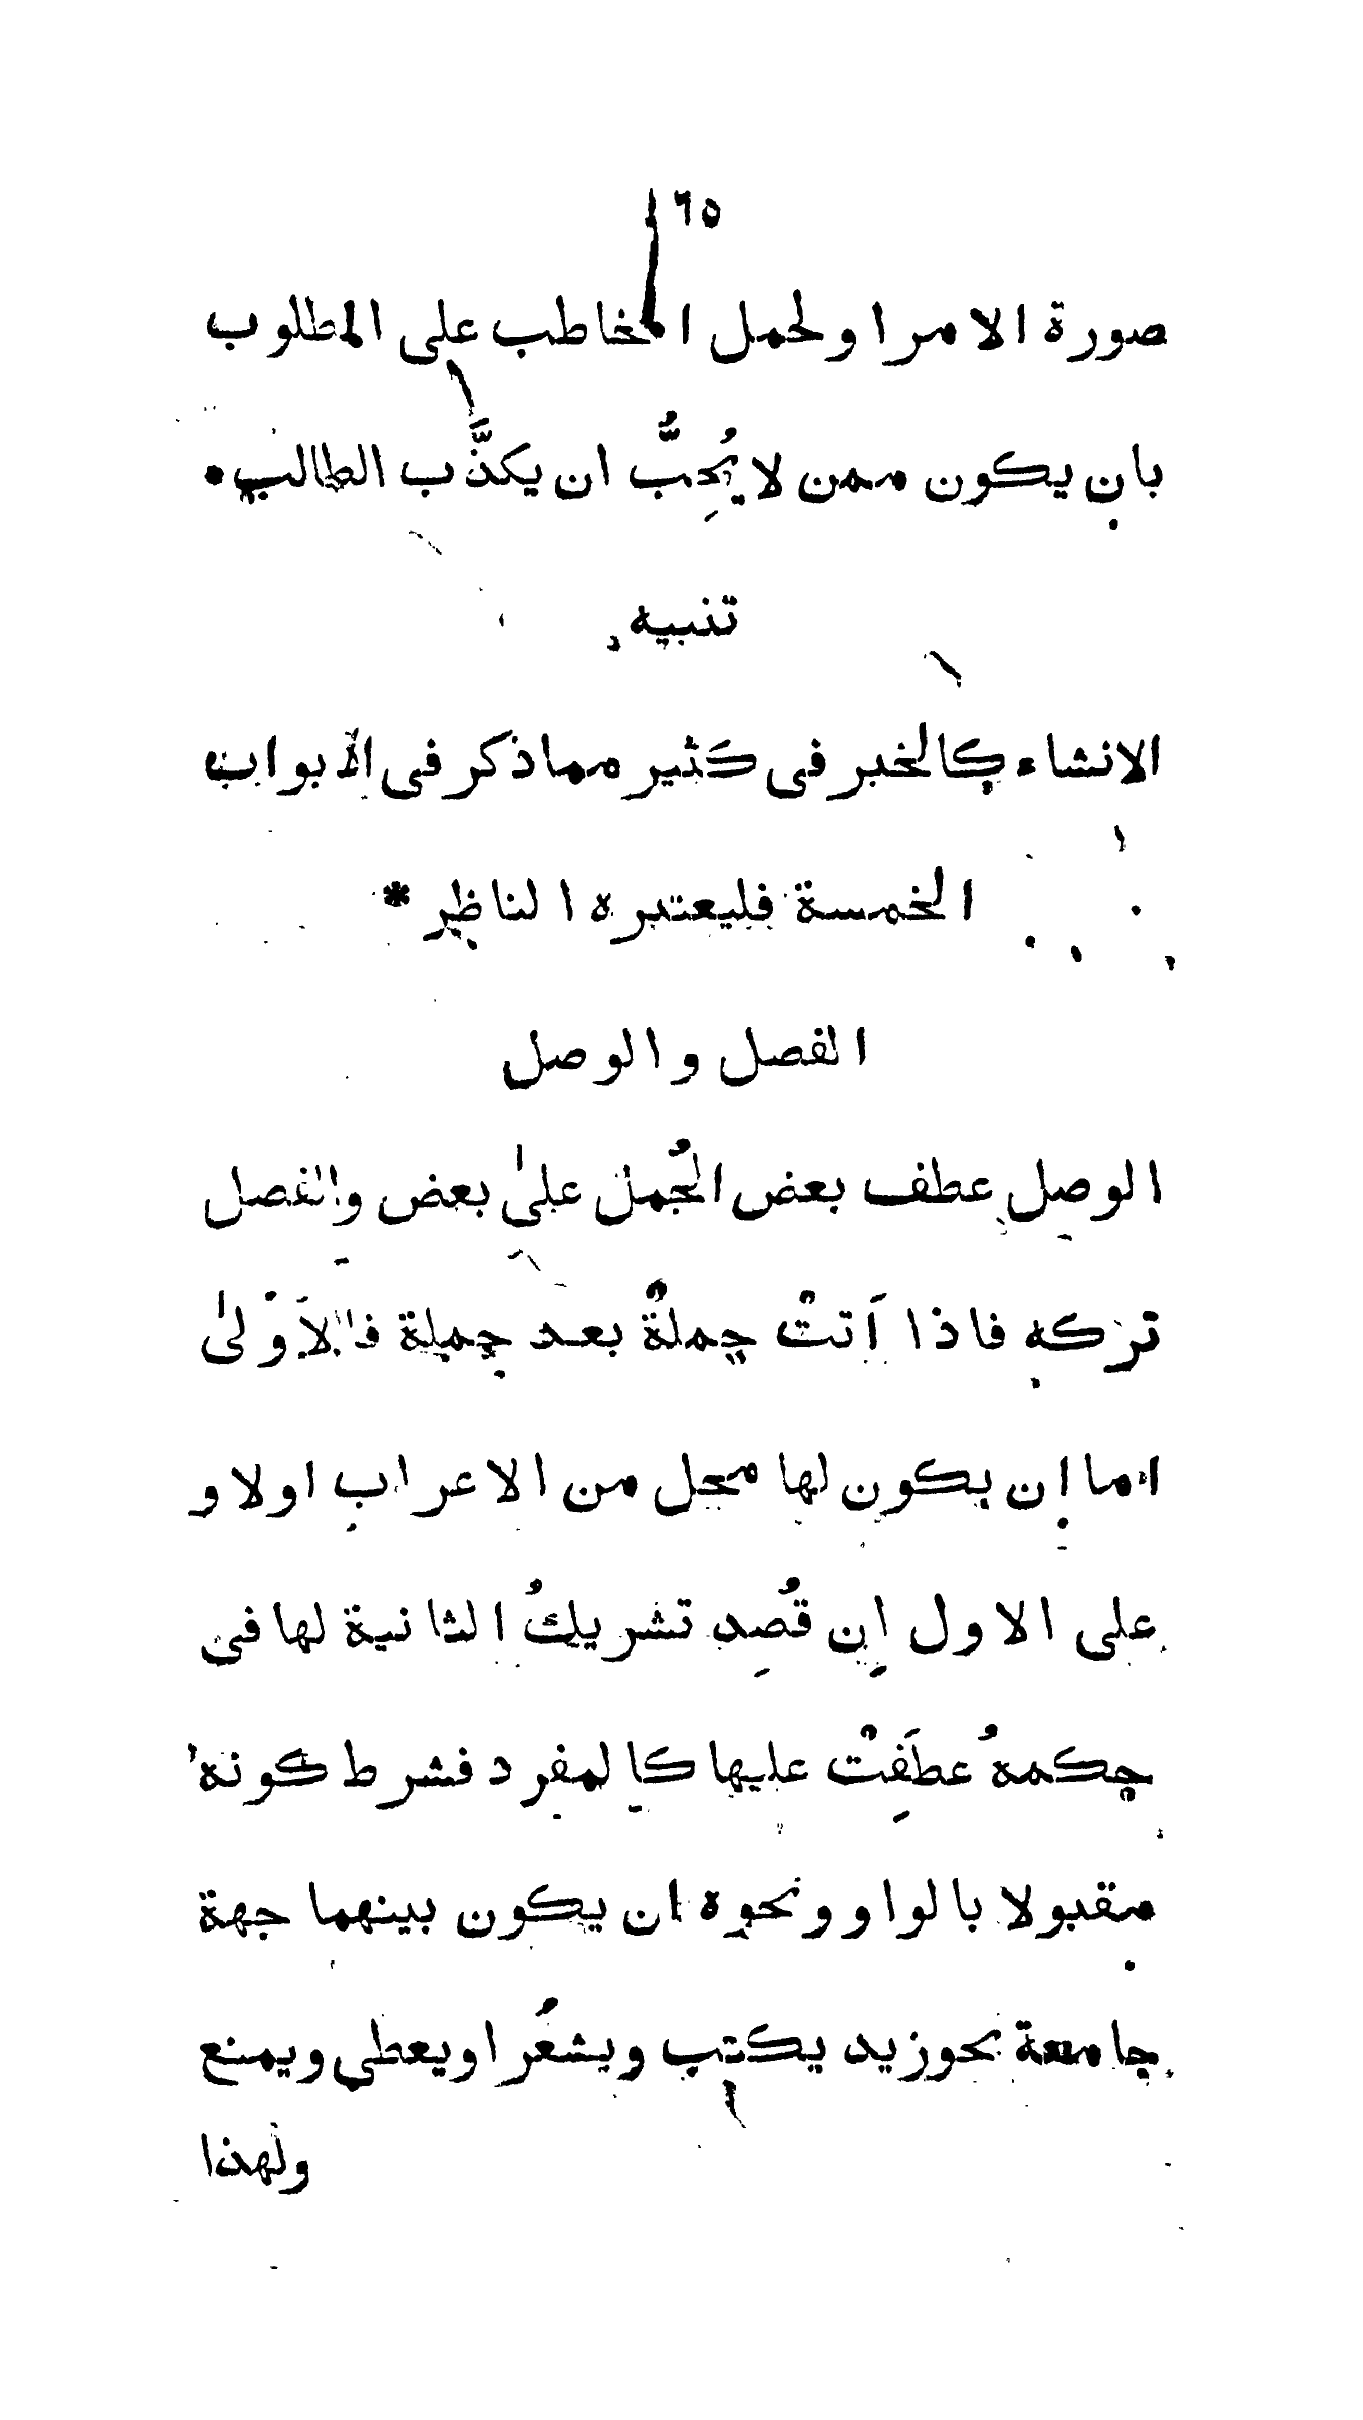 ٦٥
صورة الامر او لحمل المخاطب على المطلوب
بان يكون ممن لا يُحِبُّ ان يكذَّب الطالب •
تنبيه
الانشاء كالخبر فى كثير مما ذكر فى الابواب
الخمسة فليعتبره الناظر *
الفصل والوصل
الوصل عطف بعض الجُمل علىٰ بعض والفصل
تركه فاذا اَتتْ جملةٌ بعد جملة فالاَوْلىٰ
اما ان يكون لها محل من الاعراب اولا و
على الاول اِن قُصِد تشريكُ الثانية لها فى
حكمهُ عطَفِتْ عليها كالمفرد فشرط كونه
مقبولا بالواو ونحوه ان يكون بينهما جهة
جامعة نحو زيد يكتب ويشعُر او يعطى ويمنع
ولهذا